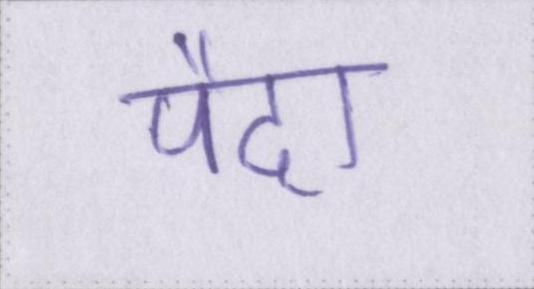 पैदा